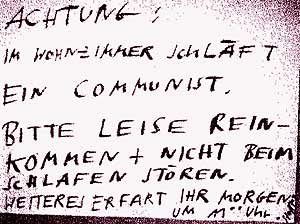 ACHTUNG!
IM WOHNZIMMER SCHLÄFT
EIN COMMUNIST.
BITTE LEISE REIN-
KOMMEN + NICHT BEIM
SCHLAFEN STÖREN.
WEITERES ERFART IHR MORGEN
UM UHR.